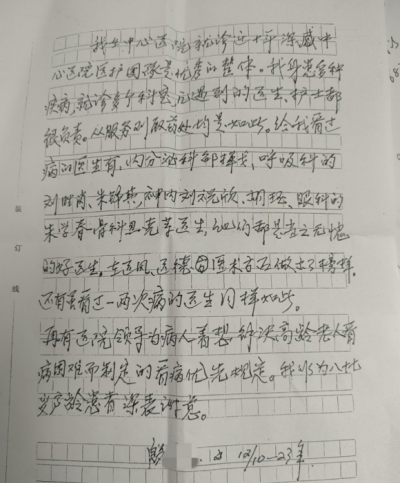 我在中心医院就诊近十年深感中
心医院医护团队是优秀的整体。我身患多种
疾病,就诊多个科室,所遇到的医生、护士都
很负责。从服务到取药处均是如此。给我看过
病的医生有,内分泌科 呼吸科的
刘 朱 神内刘 胡 眼科的
朱学春骨科 医生,他们都是当之无愧
的好医生,在医风、医德 医术方面做出了榜样。
还有我看过一两次病的医生同样如此。
再有医院领导为病人着想 解决高龄老人看
病困难而制定的看病优先规定。我作为八十
岁高龄患者深表谢意。
12/10—23年
装
订
线